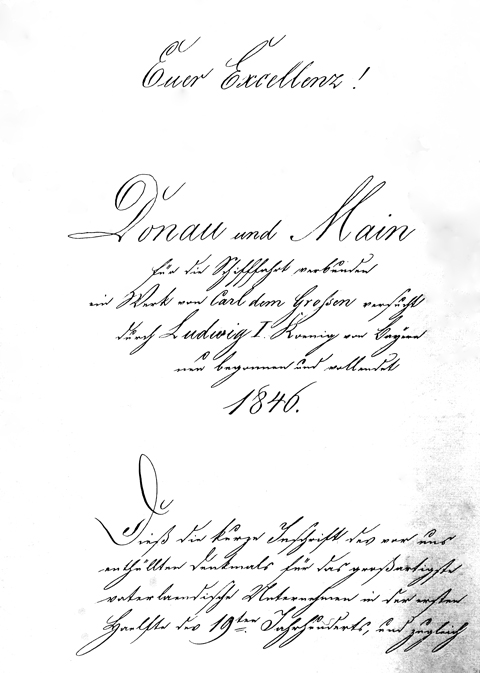 Euer Excellenz!
Donau und Main
für die Schifffahrt verbunden
ein Werk von Carl dem Großen versucht
durch Ludwig I. Koenig von Bayern
neu begonnen und vollendet
1846.
Dieß die kurze Inschrift des vor uns
enthüllten Denkmals für das großartigste
vaterlaendische Unternehmen in der ersten
Haelfte des 19ten Jahrhunderts, und zugleich